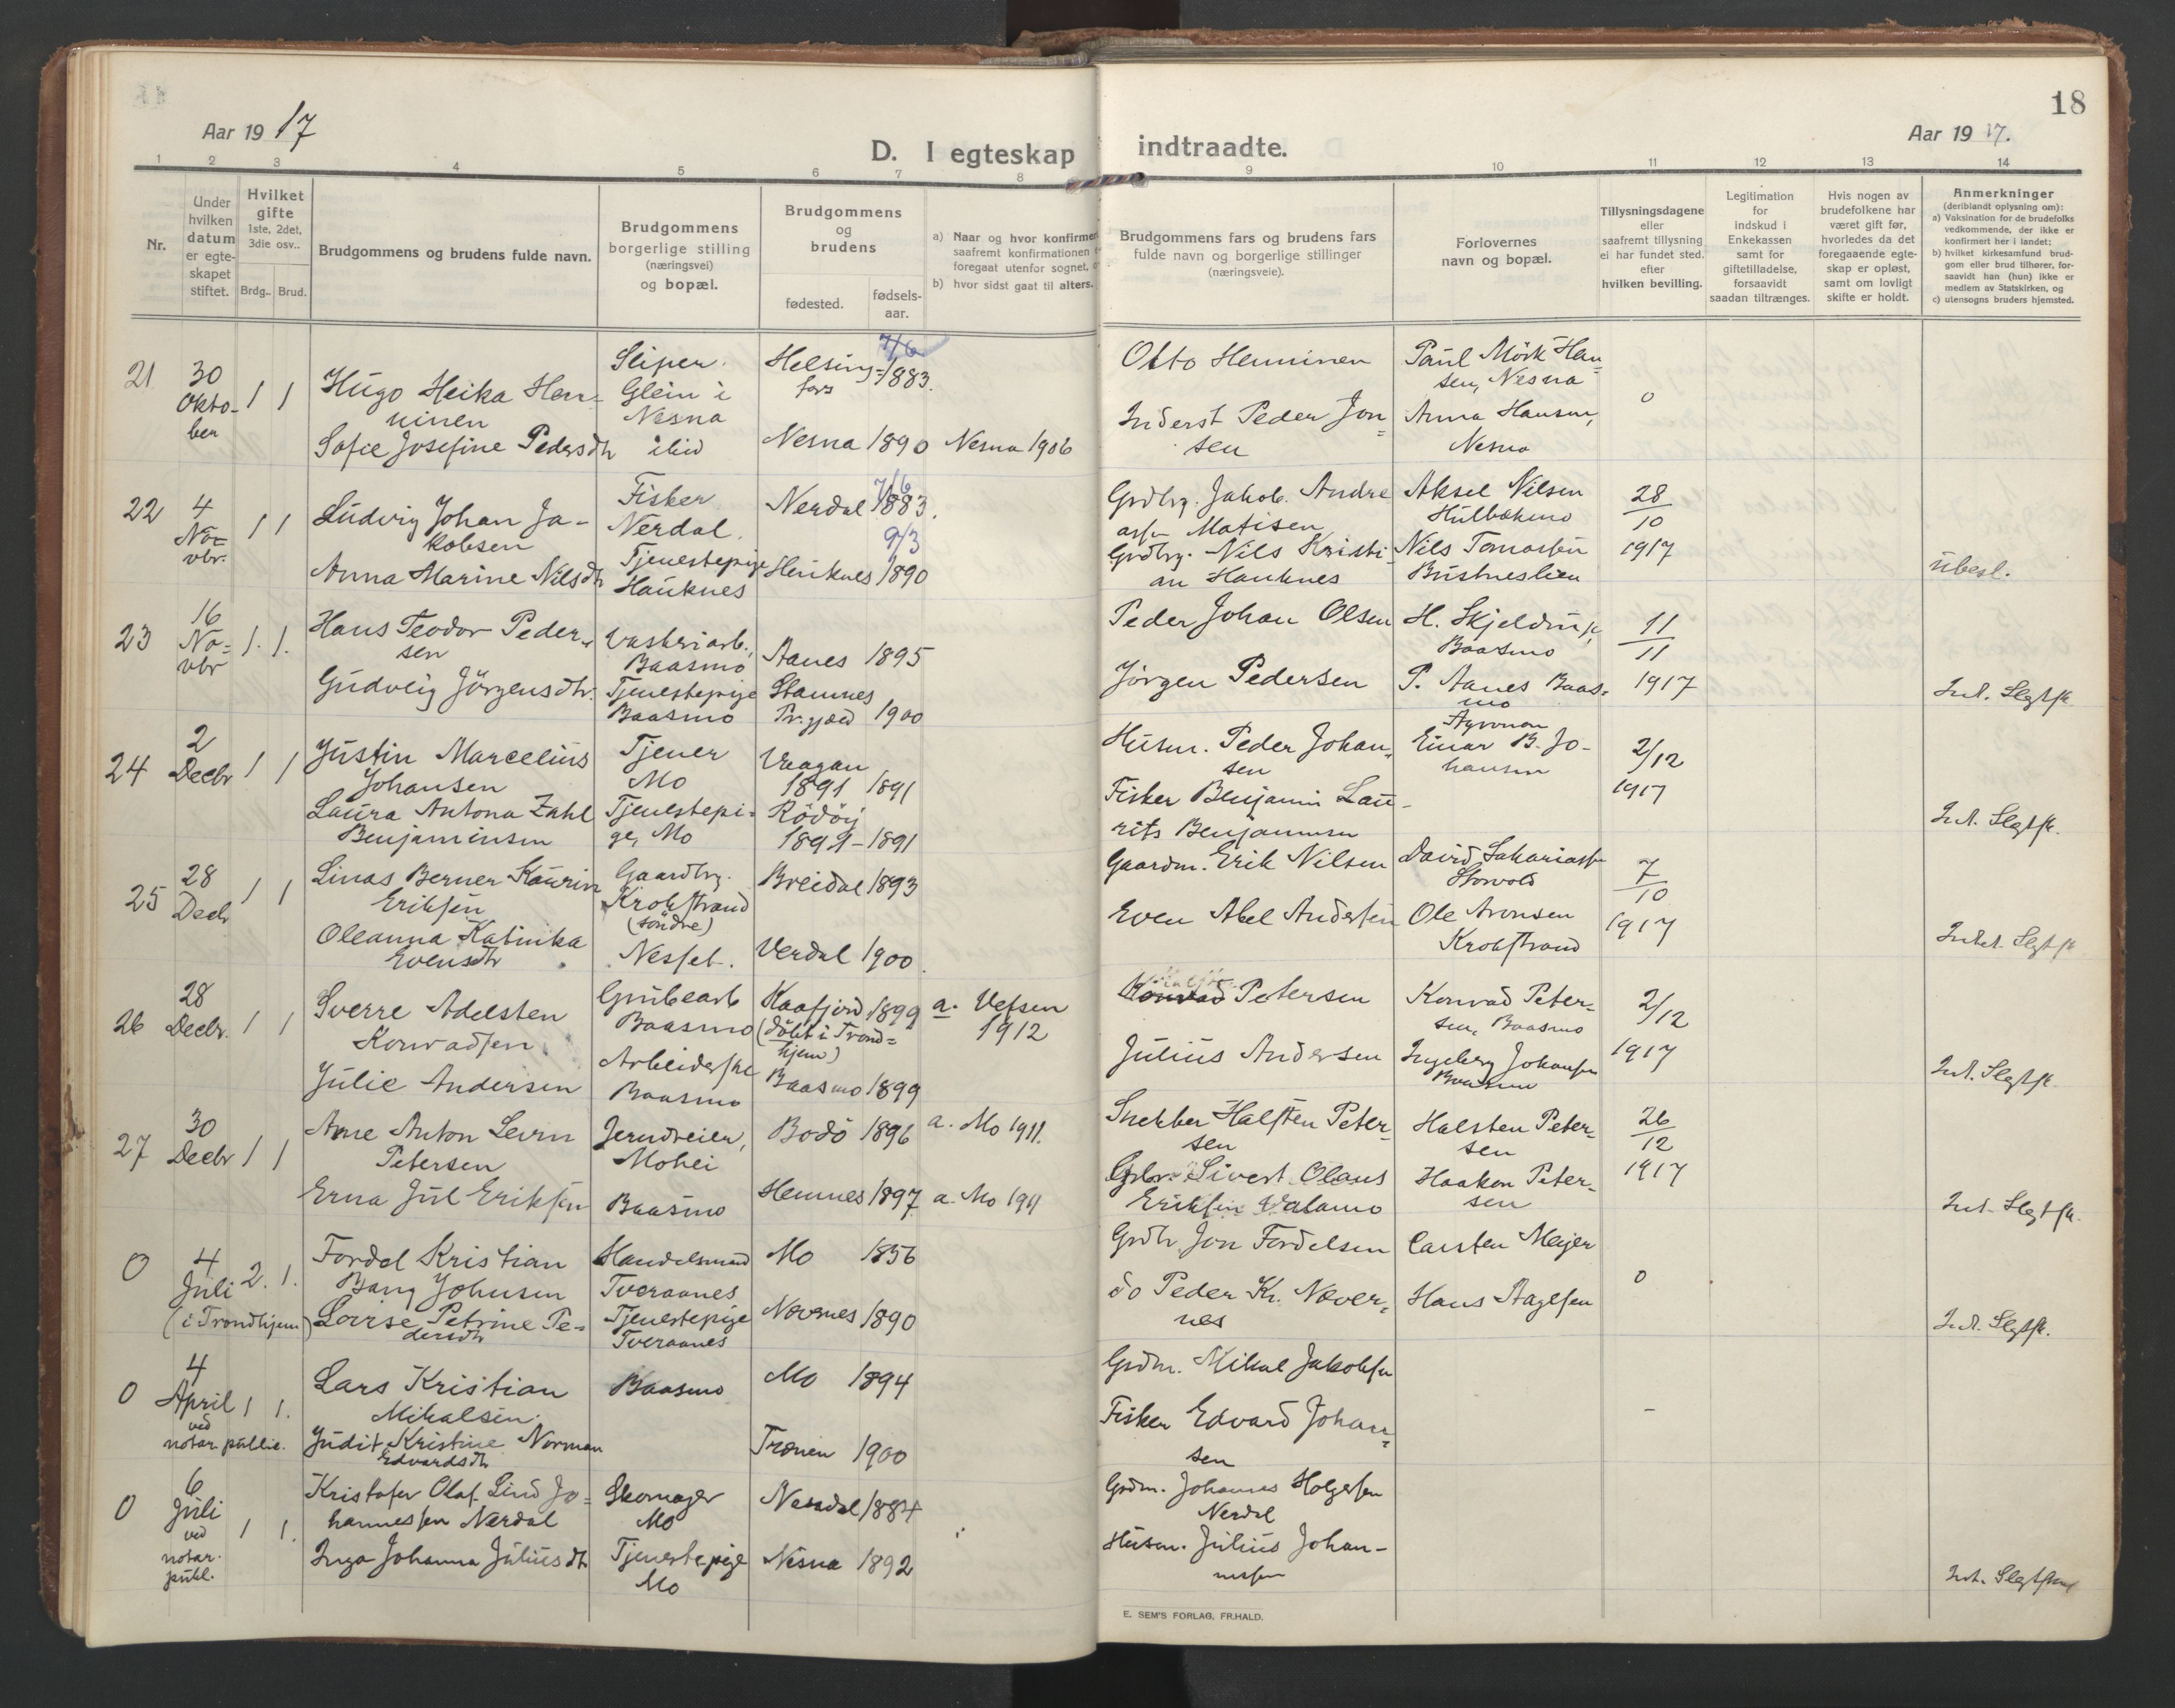 18
Aar 19 17
Aar 19 17.
D. I egteskap indtraadte.
1 2 3 4 5 6 7 8 9 10 11 12 13 14
Nr.
Under
hvilken
datum
er egte-
skapet
stiftet.
Hvilket
gifte
1ste, 2det,
3die osv..
Brdg.. Brud.
Brudgommens og brudens fulde navn.
Brudgommens
borgerlige stilling
(næringsvei)
og bopæl.
Brudgommens
og
brudens
fødested.
fødsels-
aar.
a) Naar og hvor konfirmer
saafremt konfirmationen
foregaat utenfor sognet,
b) hvor sidst gaat til alters.
Brudgommens fars og brudens fars
fulde navn og borgerlige stillinger
(næringsveie).
Forlovernes
navn og bopæl.
Tillysningsdagene
eller
saafremt tillysning
ei har fundet sted.
efter
hvilken bevilling.
Legitimation
for
indskud i
Enkekassen
samt for
giftetilladelse,
forsaavidt
saadan tiltrænges.
Hvis nogen av
brudefolkene har
været gift før,
hvorledes da det
foregaaende egte-
skap er opløst,
samt om lovligt
skifte er holdt.
Anmerkninger
(deriblandt oplysning om):
a) Vaksination for de brudefolks
vedkommende, der ikke er
konfirmert her i landet;
b) hvilket kirkesamfund brud-
gom eller brud tilhører, for-
saavidt han (hun) ikke er
medlem av Statskirken, og
c) utensogns bruders hjemsted.
21
30
Okto-
ber
1 1
Hugo Heika Hen-
ninen
Sofie Josefine Pedersdtr
Sliper.
Glein i
Nesna
ibid
Helsing-
fors
7/6
1883.
Nesna 1890
Nesna 1906
Otto Henninen
Inderst Peder Jon-
sen
Paul Mörk Han-
sen, Nesna
Anna Hansen,
Nesna
0
22
4
No-
vbr.
1 1
Ludvig Johan Ja-
kobsen
Anna Marine Nilsdtr
Fisker
Nerdal.
Tjenestepige
Hauknes
Nerdal 7/6 1883.
9/3
Hauknes 1890
Grdbrg. Jakob Andre
assen Matisen
Grdbrg. Nils Kristi-
an Hauknes
Aksel Nilsen
Hulbækmo
Nils Tomassen
Bustneslien
28
10
1917
ubesl.
23
16
No-
vbr
1. 1.
Hans Teodor Peder-
sen
Gudveig Jörgensdtr.
Vaskeriarb.,
Baasmo
Tjenestepige
Baasmo
Aanes 1895
Stamnes
Pr.gjæld 1900
Peder Johan Olsen
Jörgen Pedersen
H. Skjeldrup,
Baasmo
P. Aanes Baas-
mo
11
11
1917
Int. Slegtsk.
24
2
Decbr
1 1
Justin Marcelius
Johansen
Laura Antona Zahl
Benjaminsen
Tjener
Mo
Tjenestepi-
ge, Mo
Vaagan
1891 1891
Rödöy
1891 - 1891
Husm. Peder Johan-
sen
Fisker Benjamin Lau-
rits Benjaminsen
Agronom
Einar B. Jo-
hansen
2/12
1917
Int. Slegtsk.
25
28
Decb.
1 1
Linas Berner Kaurin
Eriksen
Oleanna Katinka
Evensdtr
Gaardbrg.
Krokstrand
(söndre)
Nesset.
Breidal 1893
Verdal 1900.
Gaardm. Erik Nilsen
Even Abel Andersen
David Sakariassen
Storvold
Ole Aronsen
Krokstrand
7
10
1917
Intet Slegtsk
26
28
Decbr.
1 1
Sverre Adelsten
Konradsen
Julie Andersen
Grubearb
Baasmo
Arbeiderske
Baasmo
Kaafjord 1899
(döbt i Trond-
hjem)
Baasmo 1899
a. Vefsen
1912
Konrad Petersen
Julius Andersen
Konrad Peter-
sen, Baasmo
Ingeborg Johansen
Baasmo
2/12
1917
Int. Slegtsk.
27
30
Decbr
1 1
Arne Anton Levin
Petersen
Erna Jul Eriksen
Jerndreier,
Mohei
Baasmo
Bodö 1896
Hemnes 1897
a. Mo 1911.
a. Mo 1911
Snekker Halsten Peter-
sen
Grbr. Sivert Olaus
Eriksen Valamo
Halsten Peter-
sen
Haakon Peter-
sen
26
12
1917
Int. Slegtsk.
0
4
Juli
(i Trondhjem)
2. 1.
Fordel Kristian
Bang Johnsen
Lovise Petrine Pe-
dersdtr
Handelsmand
Tveraanes
Tjenestepige
Tveraanes
Mo 1856
Nævernes 1890
Grdbr Jon Fordelsen
do Peder Kr. Næver-
nes
Carsten Meijer
Hans Aagesen
0
Int. Slegtsk.
0
4
April
ved
notar. public.
1 1.
Lars Kristian
Mikalsen.
Judit Kristine Norman
Edvardsdtr
Baasmo
Mo 1894
Trænen 1900
Grdm. Mikal Jakobsen
Fisker Edvard Johan-
sen
-
0
6
Juli
ved
notar.
publ.
1 1.
Kristofer Olaf Lind Jo-
hannessen Nerdal
Inga Johanna Juliusdtr
Skomager
Mo
Tjenestepige
Mo
Nerdal 1884
Nesna 1892
Grdm. Johannes Holgersen
Nerdal
Husm. Julius Johan-
nessen
Int. Slegtskap
E. SEM'S FORLAG, FR.HALD.